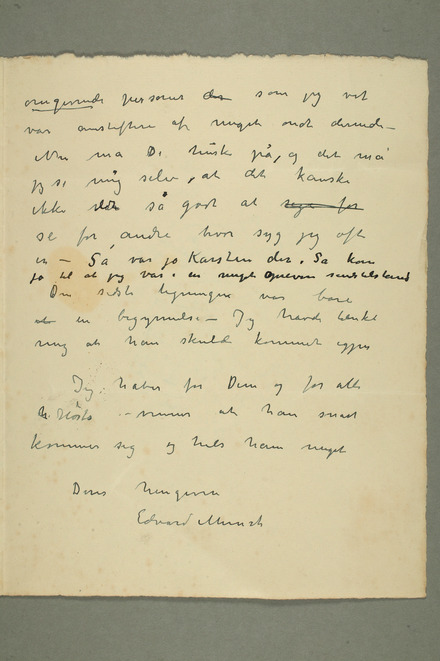 omgivende personer der som jeg vet
var anstiftere af meget ondt dernede –
Men må De huske på, og det må
jeg si mig selv, at det kanske
ikke var så godt at sige for
se for andre hvor syg jeg ofte
er – Så var jo Karsten der. Så kom
jo til at jeg var i en meget opreven sindstilstand
Den sidste tegningen var bare
en begyndelse – Jeg havde tænkt
mig at han skulde kommet igjen
Jeg håber for Dem og for alle
venner at han snart
kommer sig og hils ham meget
Deres hengivne
Edvard Munch